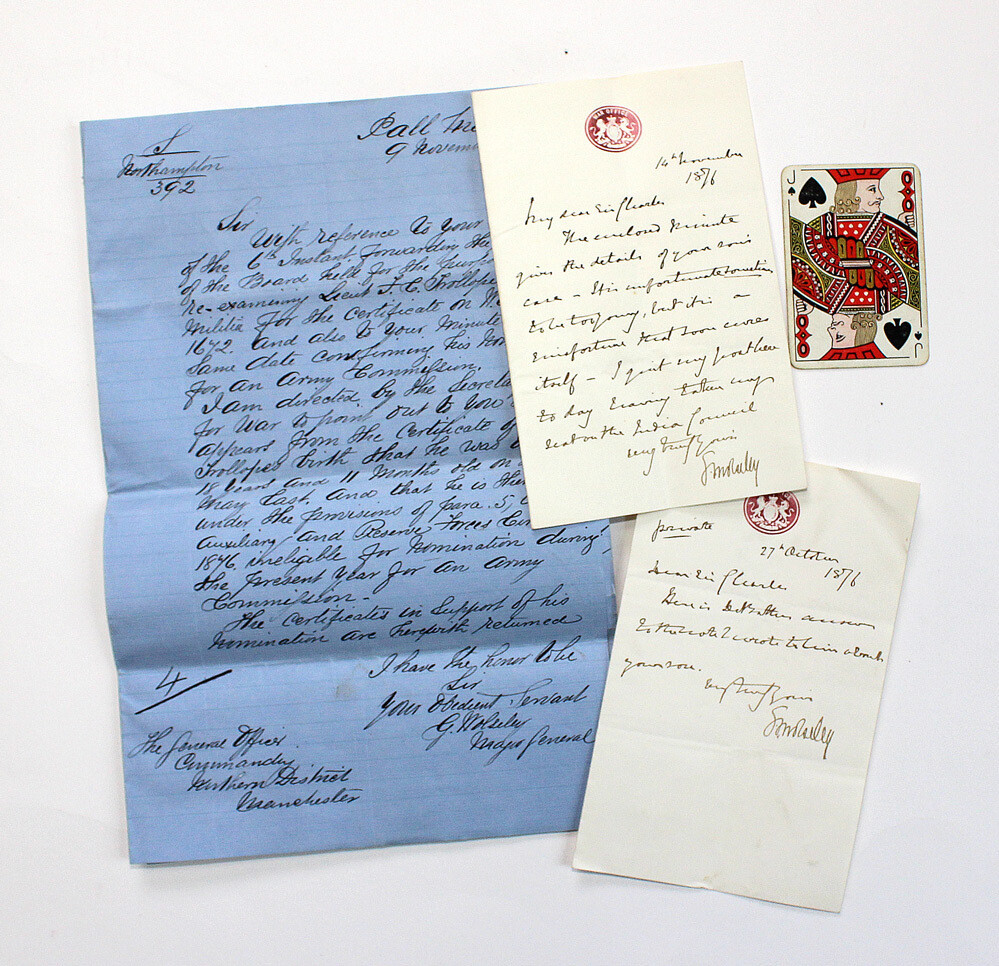 S
Northampton
392
Pall
9 Novem
Sir
With reference to your
of the 6th Instant forwarding the
of the Board held for the purpose
re-examining Lieut T. C. Trollope
Militia for the Certificate on
1672. and also to your minute
Same date confirming his
for an Army Commission.
I am directed by the Secretar
for War to point out to you
appears from the Certificate of
Trollope's birth that he was
18 years and 11 Months old on
May last. and that he is the
under the provisions of para. 5,
Auxiliary and Reserve Forces Cir
1876. ineligible for nomination during
the present year for an Army
Commission -
The Certificates in support of his
nomination are herewith returned
I have the honor to be
Sir
Your Obedient Servant
G Wolseley
Major General
4
The General Officer
Commanding
Northern District
Manchester
WAR OFFICE
14th November
1876
My dear Sir Charles
The enclosed minute
gives the details of your son's
case - It is unfortunate sometimes
to be too young, but it is a
misfortune that soon cures
itself - I quit my post here
to day having taken my
seat on the India Council
very truly yours
G. Wolseley
J
J
private
27th October
1876
Dear Sir Charles
Here is answer
to the note I wrote to him about
your son.
very truly yours
G. Wolseley